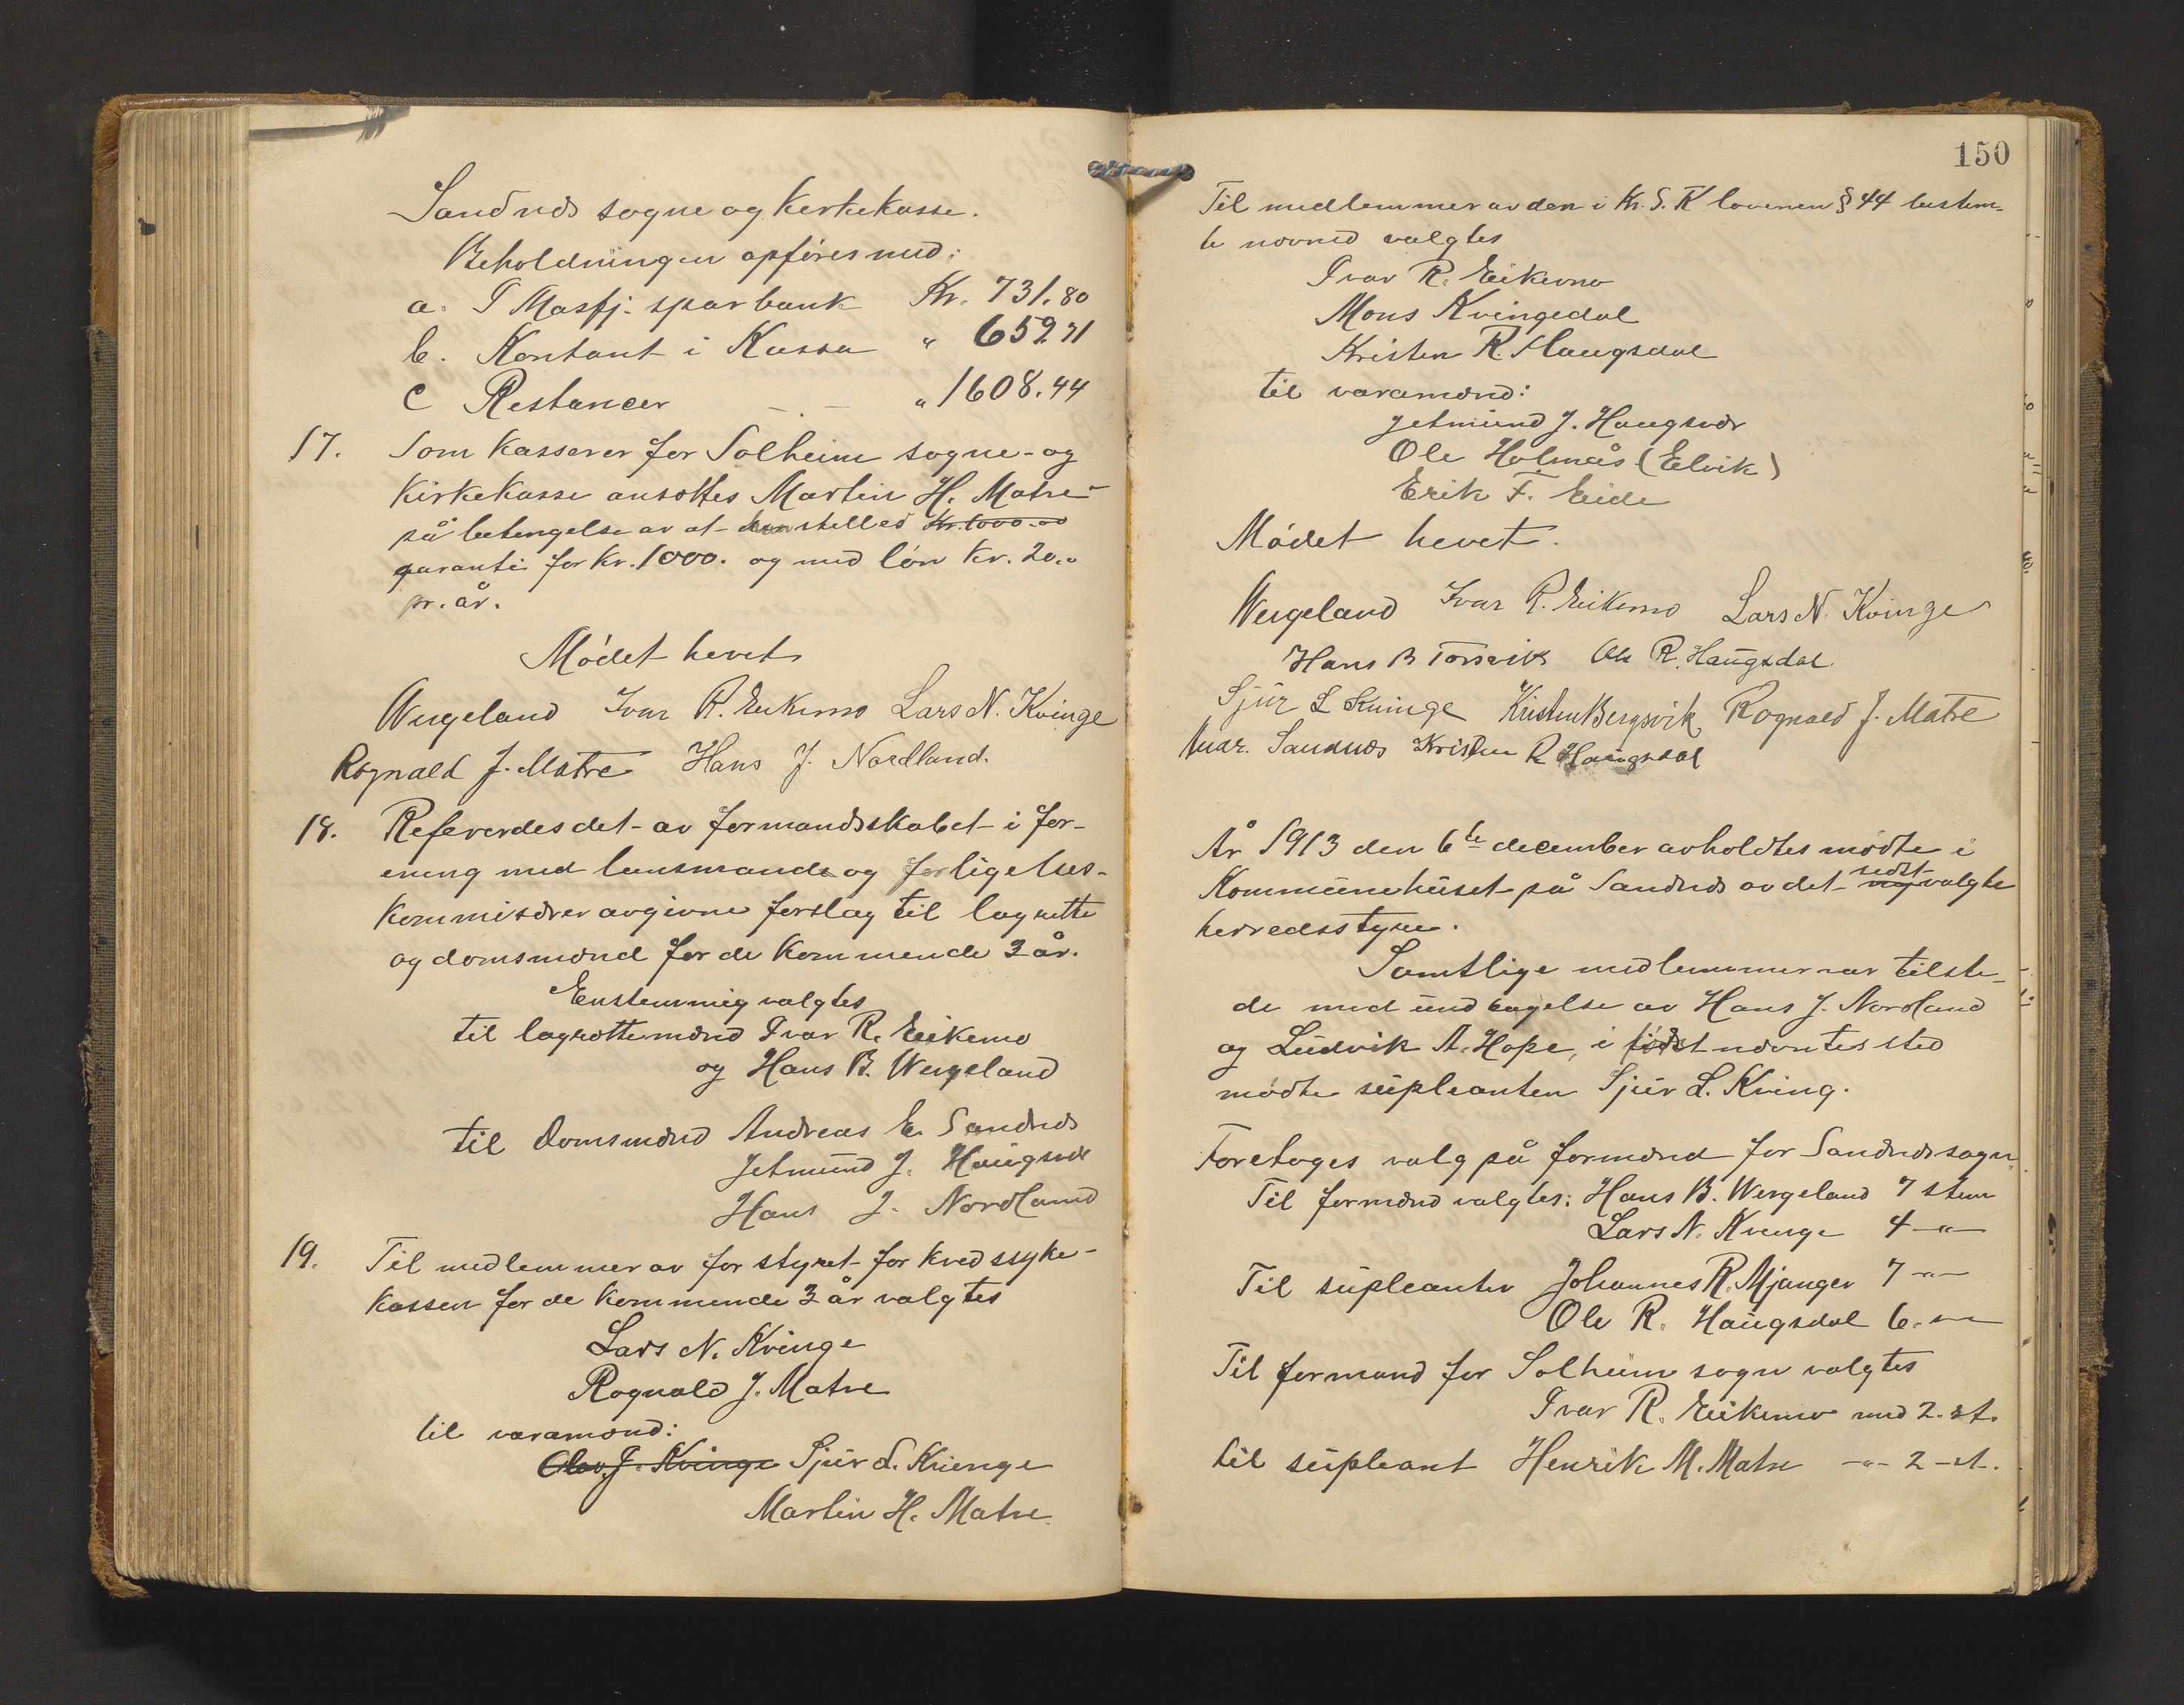 Sandnæs sogne og Kirkekasse.
Beholdningen opføres med:
a. I Masfj. sparbank Kr. 731.80
b. Kontant i Kassa " 659.71
c Restancer - - " 1608.44
17. Som Kasserer for Solheim sogne- og
Kirkekasse ansættes Martin H. Matre
på betengelse av at han stilles Kr. 1000.00
garanti for Kr. 1000. og med løn Kr. 20.00
pr. år.
Mødet hevet
Wergeland Ivar R. Eikemo Lars N. Kvinge
Rognald J. Matre Hans J. Nordland.
18. Refererdes det av formandsskabet i for-
ening med lensmand og forligelses-
kommisærer avgivne forslag til lagrette
og domsmænd for de kommende 3 år.
Enstemmig valgtes
til lagrettemænd Ivar R. Eikemo
og Hans B. Wergeland
til Domsmænd Andreas E. Sandnæs
Jetmund J. Haugsvær
Hans J. Nordland
19. Til medlemmer av for styret for kredssyke-
kassen for de kommende 3 år valgtes
Lars N. Kvinge
Rognald J. Matre
til varamænd:
Olav J. Kvinge Sjur L. Kvinge
Martin H. Matre.
150
Til medlemmer av den i Kr. S. K lovenen § 44 bestem-
te nævnd valgtes
Ivar R. Eikemo
Mons Kvingedal
Kristen R. Haugsdal
til varamænd:
Jetmund J. Haugsvær
Ole Holmås (Elvik)
Erik F. Eide
Mødet hevet.
Wergeland Ivar R. Eikemo Lars N. Kvinge
Hans B Torsvik Ole R. Haugsdal.
Sjur L Kvinge Kristen Bergsvik Rognald J. Matre
Andr. Sandnæs Kristen R Haugsdal
År 1913 den 6te december avholdtes mødte i
Kommunehuset på Sandnæs av det ny sidst valgte
herredsstyre.
Samtlige medlemmer var tilste-
de med undtagelse av Hans J. Nordland
og Ludvik A. Hope, i først nævntes sted
mødte supleanten Sjur L. Kving.
Foretoges valg på formænd for Sandnæs sogn
Til formænd valgtes: Hans B. Wergeland 7 stem
Lars N. Kvinge 4 -"-
Til supleanter Johannes R. Mjanger 7 -"-
Ole R. Haugsdal 6. -"-
Til formand for Solheim sogn valgtes
Ivar R. Eikemo med 2. st.
til supleant Henrik M. Matre -"- 2 - st.